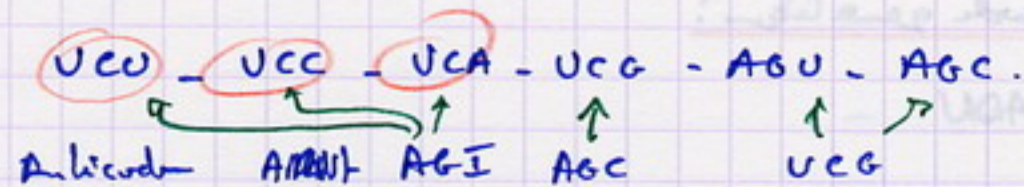 UCU - UCC - UCA - UCG - AGU - AGC.
Anticodon AGI AGC UCG